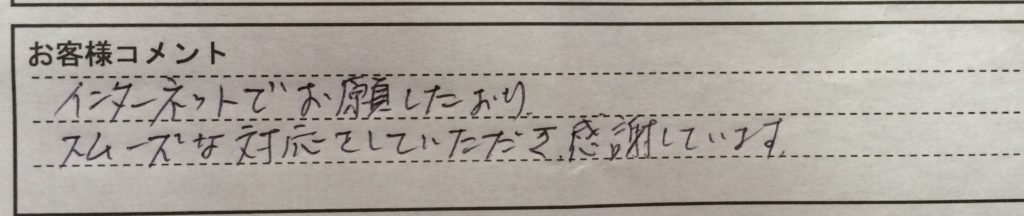 お客様コメント
インターネットでお願したおり
スムーズな対応をしていただき感謝しています。